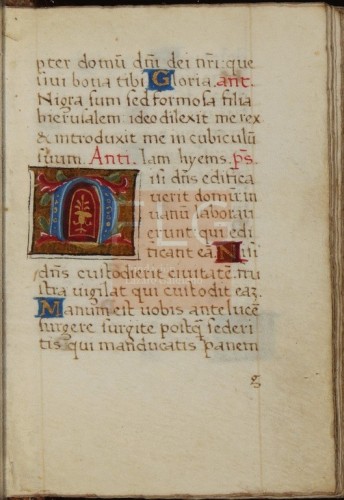 pter domū dn̄i dei nr̄i: que
siui bona tibi Gloria. ant.
Nigra sum sed formosa filia
hierusalem ideo dilexit me rex
& introduxit me in cubiculū
suum. Anti. Iam hyems. ps.
Nisi dn̄s edifica
uerit domū in
uanū laboraui
erunt qui edi
ficant ea. Nisi
dn̄s custodierit ciuitatē. fru
stra uigilat qui custodit eaz.
Manum est uobis ante lucē
surgere surgite postq̄ sederi
tis qui manducatis panem
g